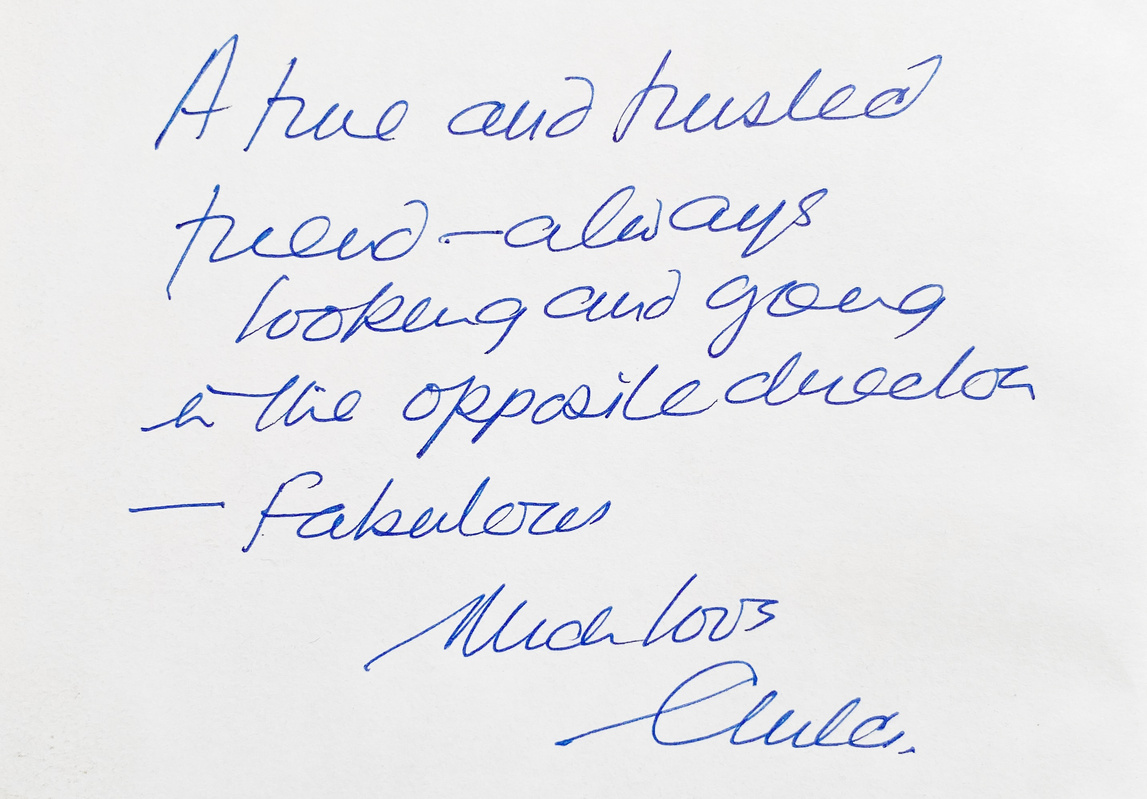 A true and trusted
friend - always
looking and going
in the opposite direction
- Fabulous
Much love